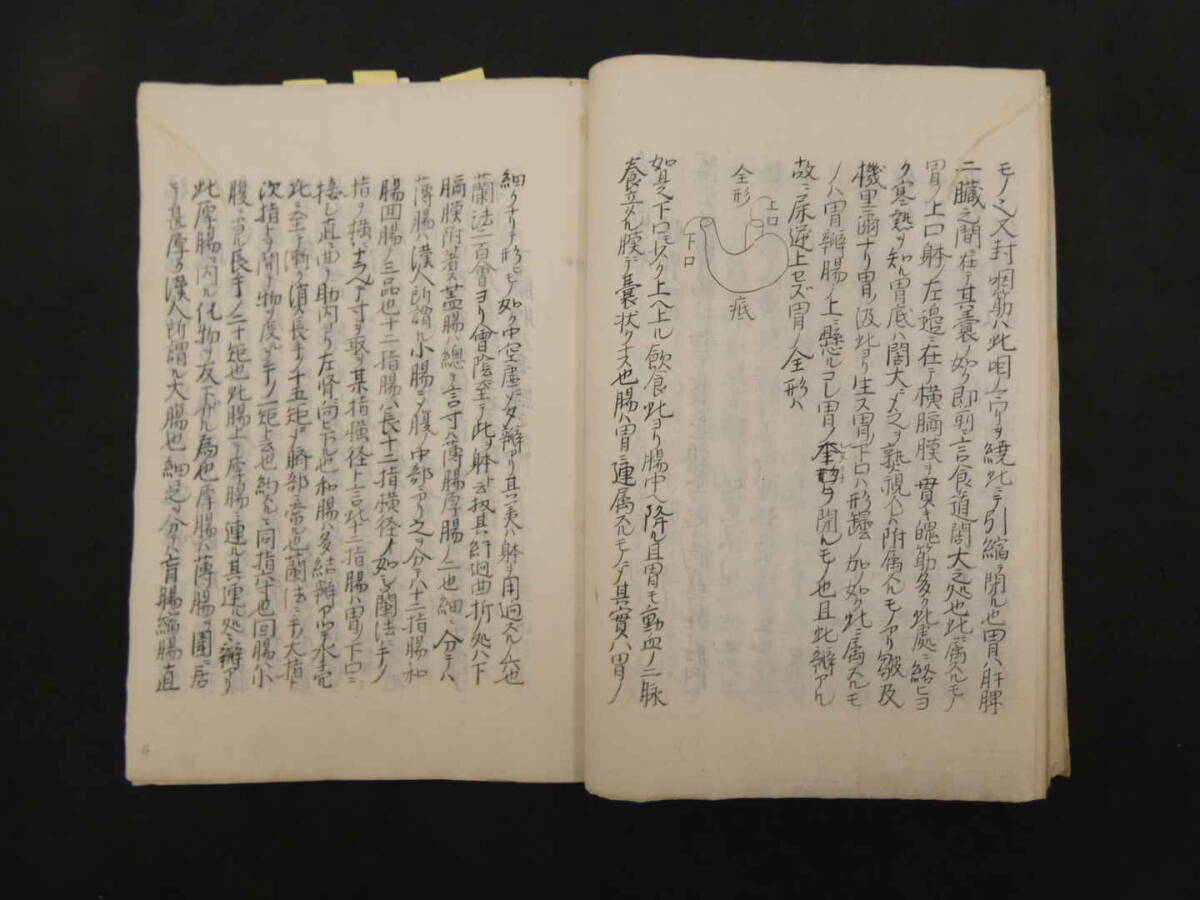 モノ之又封咽筋ハ此咽ノ守リヲ繞此ニテ引縮ヲ閉ル也胃ハ肝脾
二臓之間ニ在テ其嚢ノ如ク即前言食道闊大之処也此ニ属スルモノ
胃ノ上口躰ノ左邉ニ在テ横膈膜ヲ貫キ魄筋多ク此處ニ絡ヒヨ
ク寒熱ヲ知ル胃底ハ闊大ニメ之ヲ熟視スレハ附属スルモノアリ皺及
機里爾ナリ胃ノ汲此ヨリ生ス胃ノ下口ハ形罎ノ如ク此ニ属スルモ
ノハ胃辧腸ノ上ニ懸ル
胃ノ
閉ルモノ也且此辧アル
故ニ尿逆上セズ胃ノ全形ハ
全形
上口
下口
底
如之下口モ少ク上ヘ上ル飲食此ヨリ腸中ヘ降ル且胃モ動血ノ二脉
養立ル膜ニテ嚢状ヲナス也腸ハ胃ニ連属スルモノニテ其實ハ胃ノ
細クナリテ形モノ如ク中空虚ニメ辧アリ其
躰ヲ
蘭法ニ百會ヨリ會陰ニ至テ此ヲ躰ト云扨其紆廻曲折処ハ下
膈膜附著ス蓋腸ハ總テ言寸ハ薄腸厚腸ノ二也細ニ分テハ
薄腸ハ漢人所謂ル小腸ニメ腹ノ中部ニアリ之ヲ分テハ十二指腸和
腸回腸ノ三品也十二指腸ハ長十二指横径ノ如シ蘭法ニ手ノ
指ヲ横ニナヘテ寸ヲ取ヲ某指横径ト言此十二指腸ハ胃ノ下口ニ
接し直ニ曲テ肋内ヨリ左腎ニ向ヒ下ル也和腸ハ多結辧アツメ水壳
此ニ至テ漸ク消ス長キノ十五矩ニメ臍部ニ當ル也蘭法ニ手ノ大指ト
次指トヲ開テ物ヲ度ルヲ手ノ一矩ト云也
同指
也回腸ハ小
腹ニ
長手ノ二十矩也此腸上テ厚腸ニ連ル其連ル処ニ辧アリ
此厚腸ノ内ル化物ヲ反下
為也厚腸ハ薄腸ヲ圍ニ居
テ甚厚ク漢人所謂ル大腸也細ニ之ヲ分テハ盲腸縮腸直